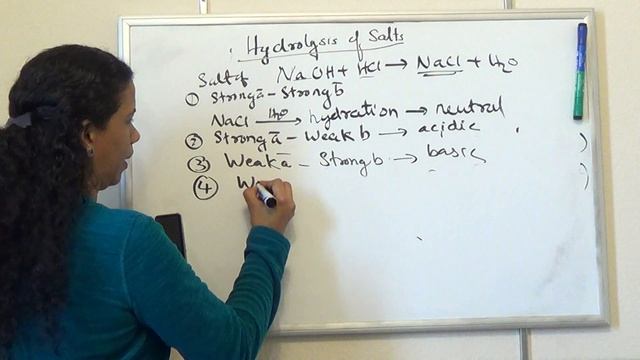 Hydrolysis of Salts
Salt of NaOH + HCl → NaCl + H₂O
① Strong ā - Strong b̄
NaCl —H₂O→ hydration → neutral
② Strong ā - Weak b → acidic
③ Weak ā - Strong b → basic
④ W